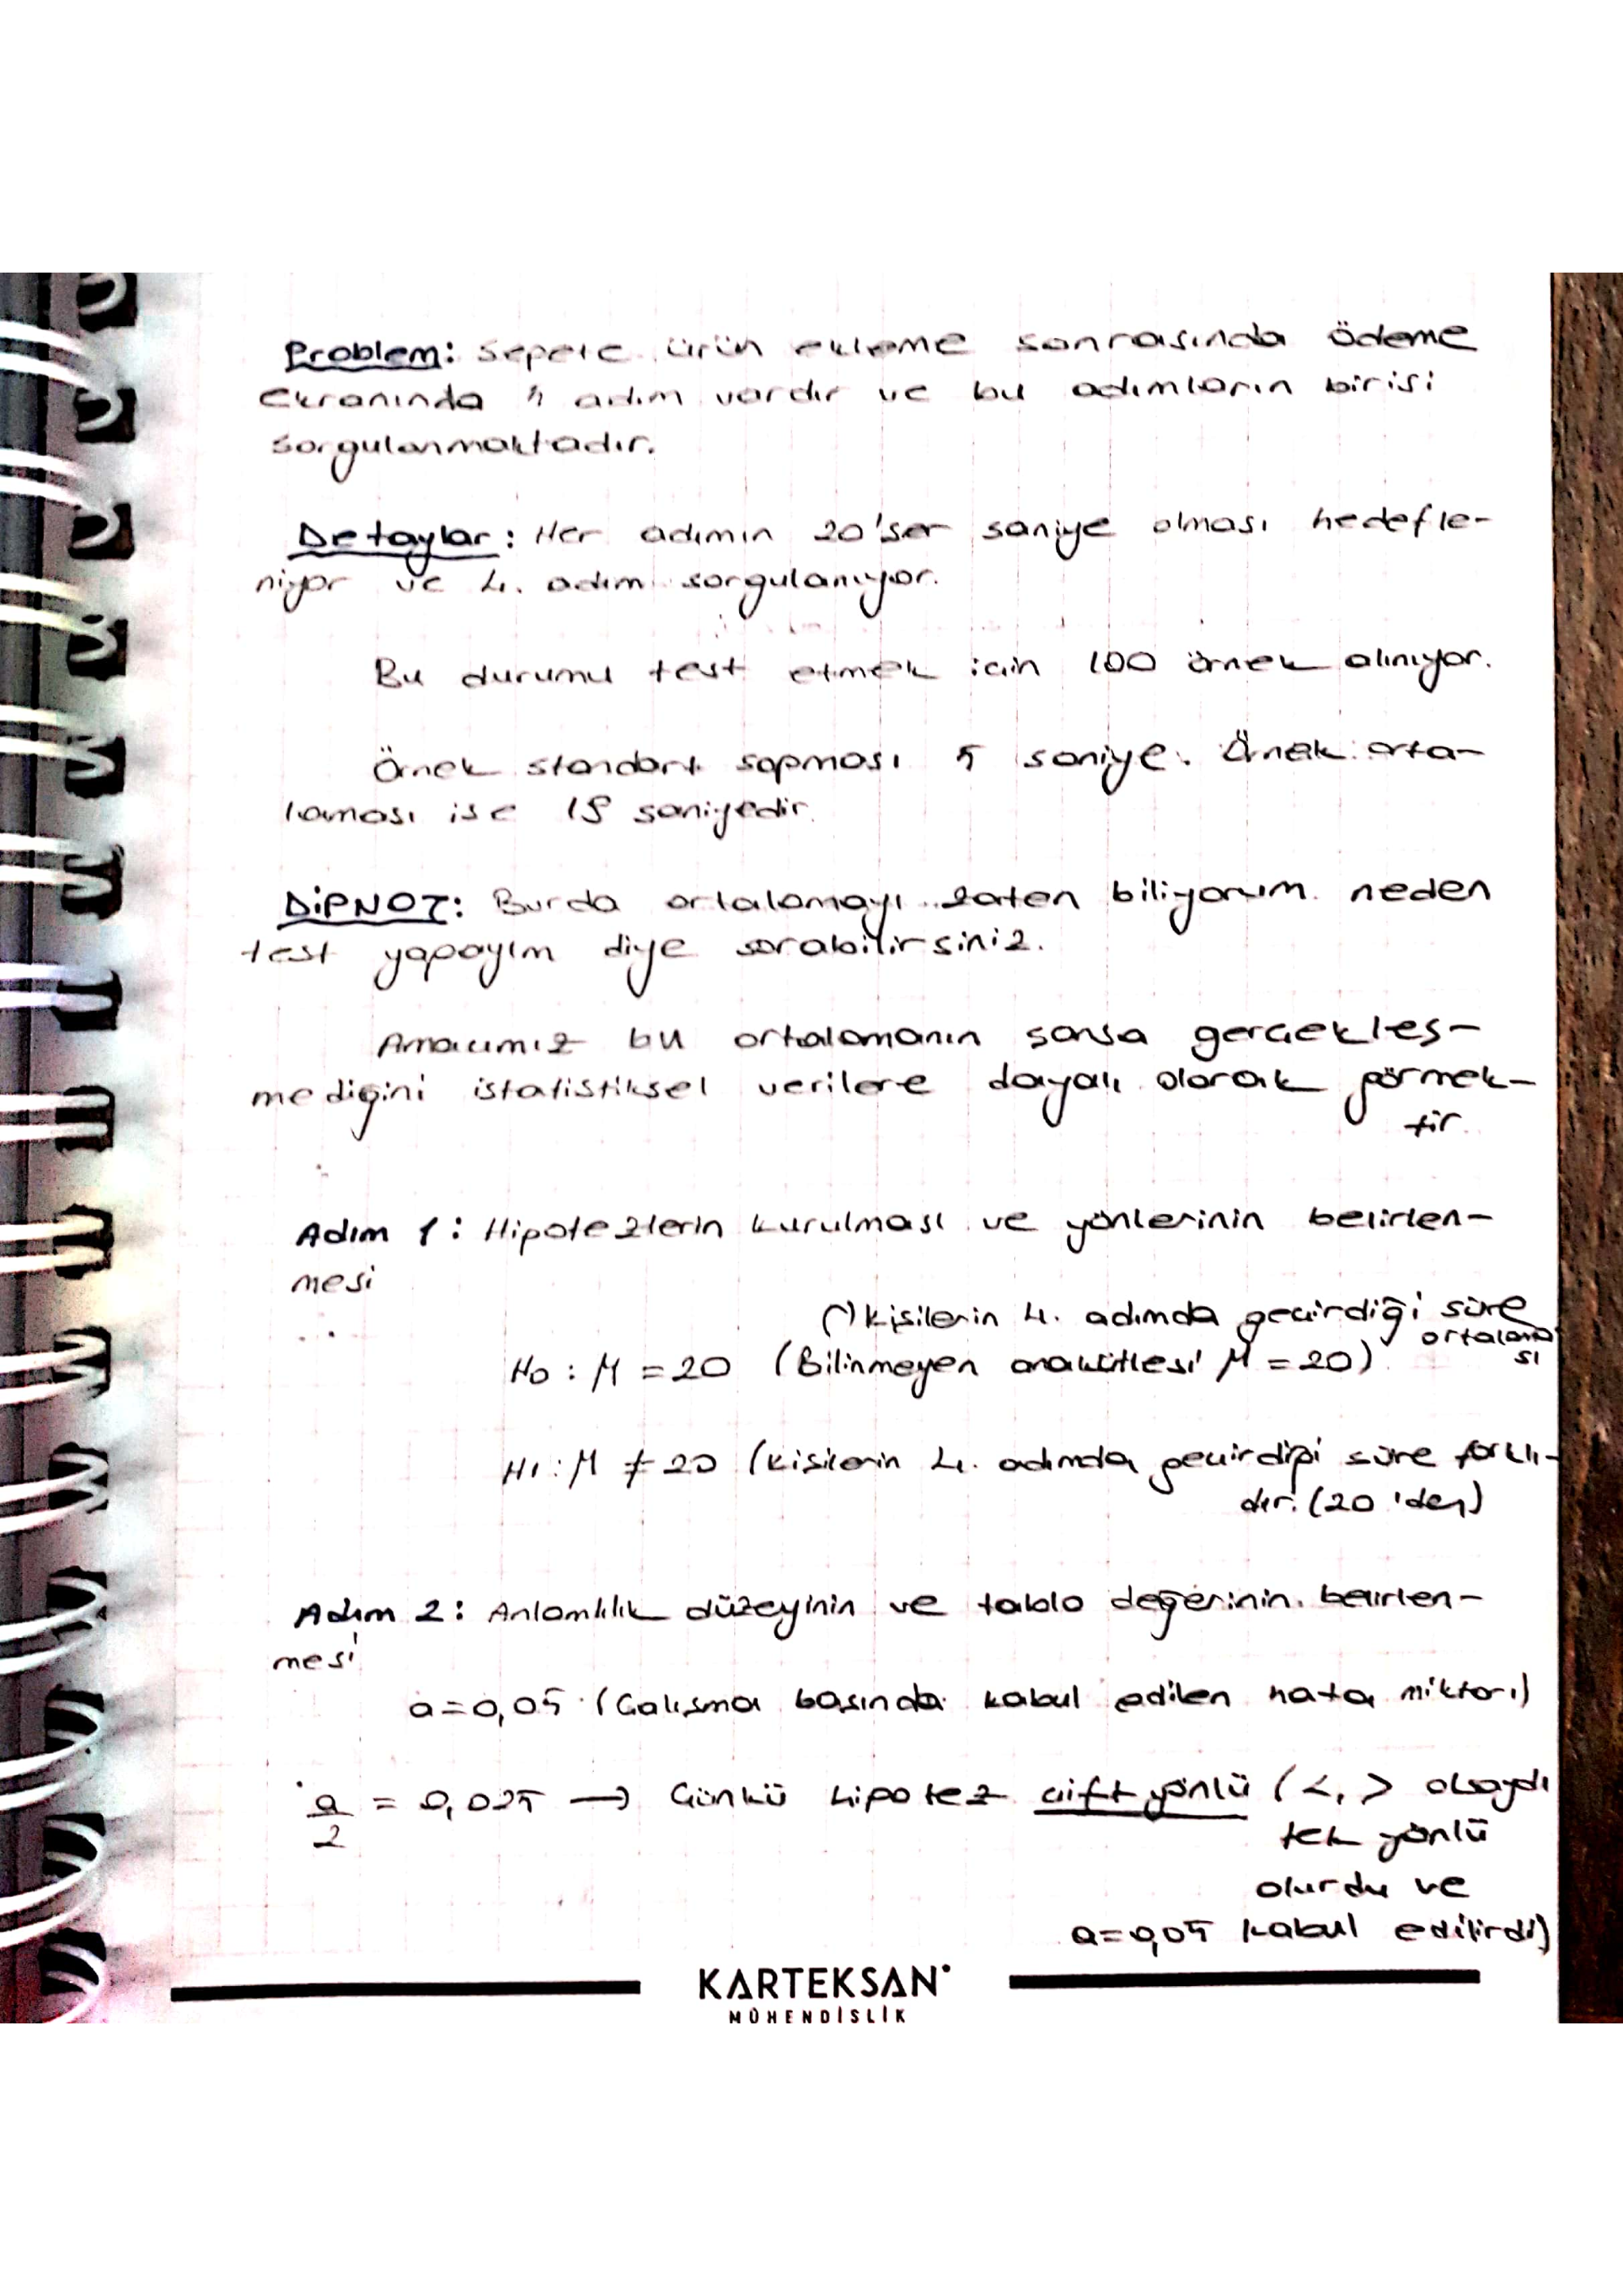 Problem: Sepete ürün ekleme sonrasında ödeme
ekranında 5 adım vardır ve bu adımların birisi
sorgulanmaktadır.
Detaylar: Her adımın 20'ser saniye olması hedefle-
niyor ve 4. adım sorgulanıyor.
Bu durumu test etmek için 100 örnek alınıyor.
Örnek standart sapması 5 saniye. Örnek orta-
laması ise 18 saniyedir.
DİPNOT: Burda ortalamayı zaten biliyorum neden
test yapayım diye sorabilirsiniz.
Amacımız bu ortalamanın şansa gerçekleş-
mediğini istatistiksel verilere dayalı olarak görmek-
tir.
Adım 1: Hipotezlerin kurulması ve yönlerinin belirlen-
mesi
(*) kişilerin 4. adımda geçirdiği süre
ortalama
sı
H0 : M = 20 (Bilinmeyen anakütlesi M = 20)
H1 : M ≠ 20 (kişilerin 4. adımda geçirdiği süre farklı-
dır. (20'den)
Adım 2: Anlamlılık düzeyinin ve tablo değerinin belirlen-
mesi
a=0,05 (Çalışma başında kabul edilen hata miktarı)
a/2 = 0,025 → Çünkü hipotez çift yönlü (<, > olsaydı
tek yönlü
olurdu ve
a=0,05 kabul edilirdi)
KARTEKSAN
MÜHENDİSLİK